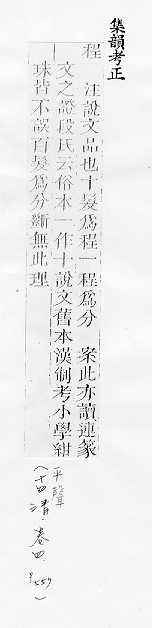 集韻考正
程 注說文品也十髮爲程一程爲分 案此亦讀連篆
文之證段氏云俗本一作十說文舊本漢制考小學紺
珠皆不誤百髮爲分斷無此理
平聲
(十四清·卷四 P559)